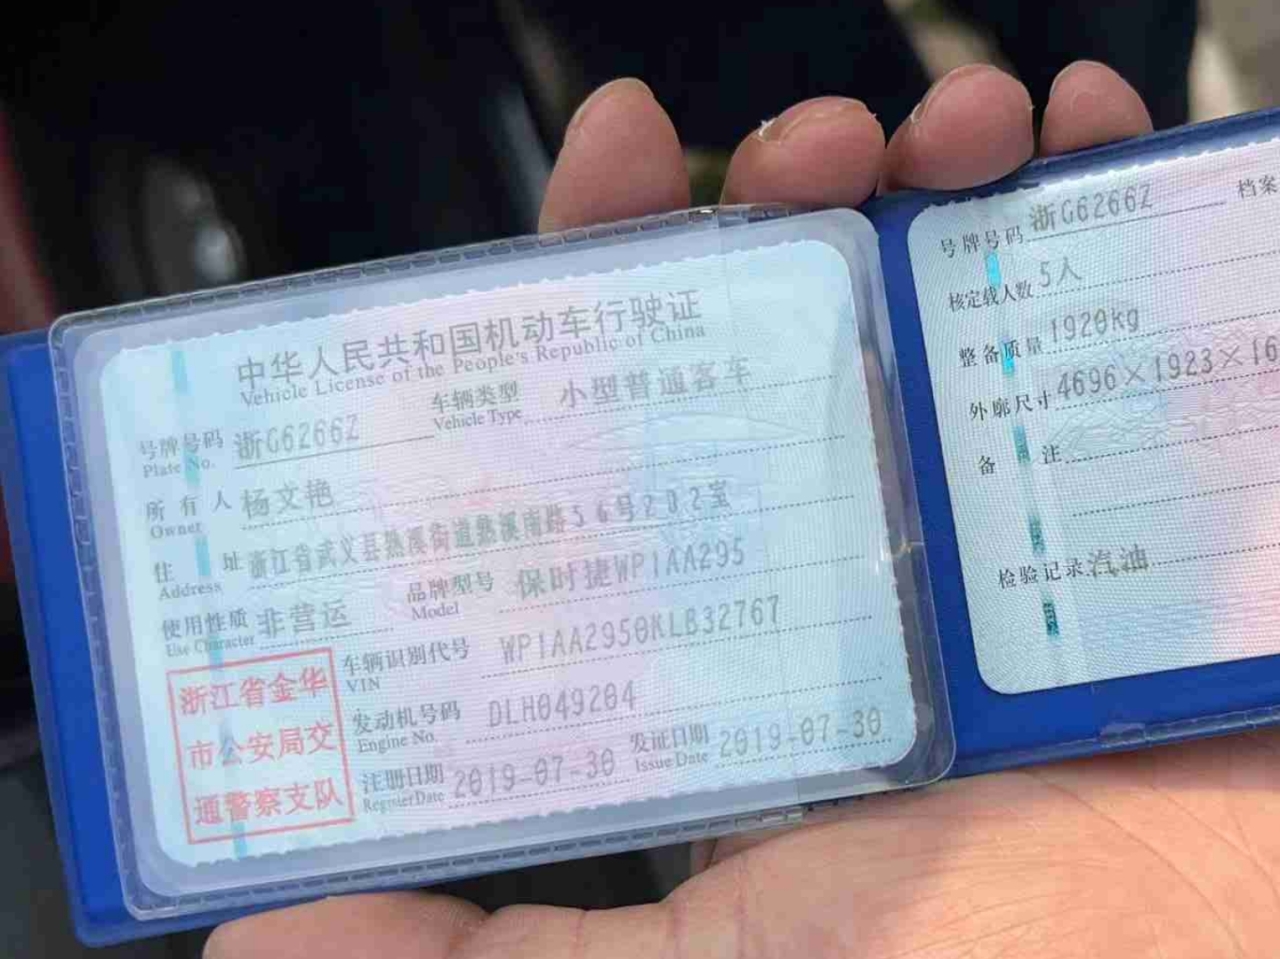 中华人民共和国机动车行驶证
Vehicle License of the People's Republic of China
号牌号码 浙G6266Z 车辆类型 小型普通客车
Plate No. Vehicle Type
所有人 杨文艳
Owner
住址 浙江省武义县熟溪街道熟溪南路56号202室
Address
使用性质 非营运 品牌型号 保时捷WP1AA295
Use Character Model
车辆识别代号 WP1AA2950KLB32767
VIN
发动机号码 DLH049204
Engine No.
注册日期 2019-07-30 发证日期 2019-07-30
Register Date Issue Date
浙江省金华
市公安局交
通警察支队
号牌号码 浙G6266Z 档案
核定载人数 5人
整备质量 1920kg
外廓尺寸 4696×1923×16
备注
检验记录 汽油